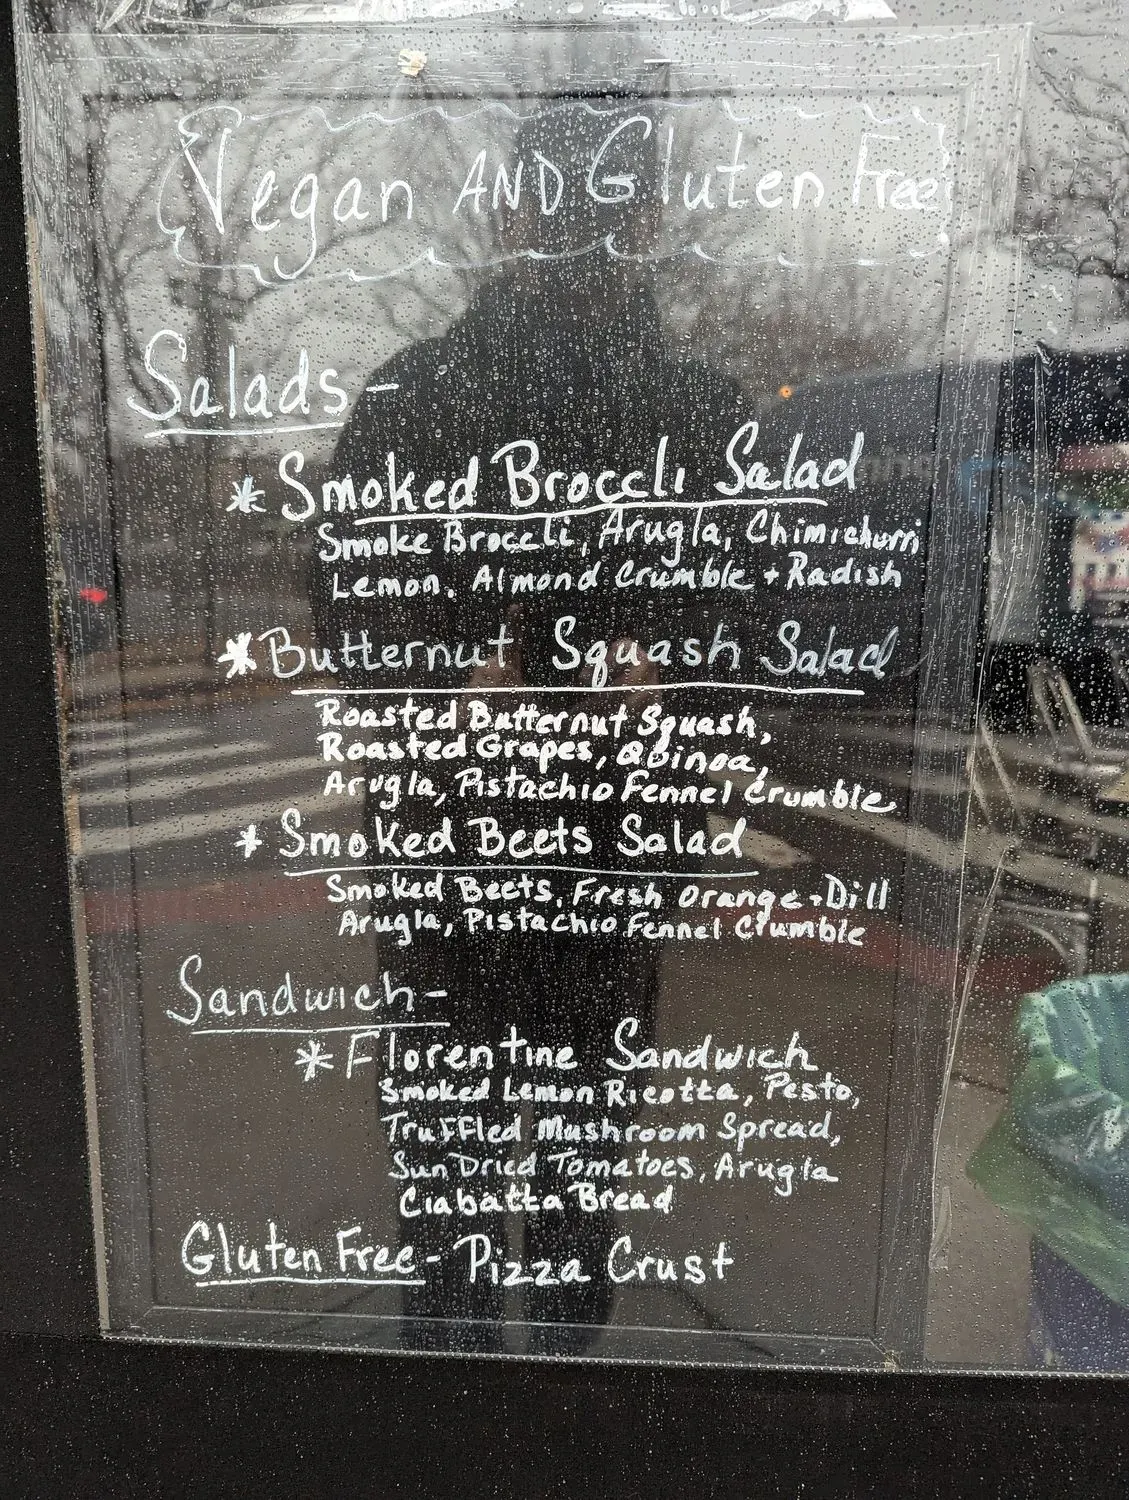 Vegan AND Gluten Free
Salads-
* Smoked Broccli Salad
Smoke Broccli, Arugla, Chimichurri
Lemon. Almond Crumble + Radish
* Butternut Squash Salad
Roasted Butternut Squash,
Roasted Grapes, Quinoa,
Arugla, Pistachio Fennel Crumble
* Smoked Beets Salad
Smoked Beets, Fresh Orange + Dill
Arugla, Pistachio Fennel Crumble
Sandwich-
* Florentine Sandwich
Smoked Lemon Ricotta, Pesto,
Truffled Mushroom Spread,
Sun Dried Tomatoes, Arugla
Ciabatta Bread
Gluten Free- Pizza Crust